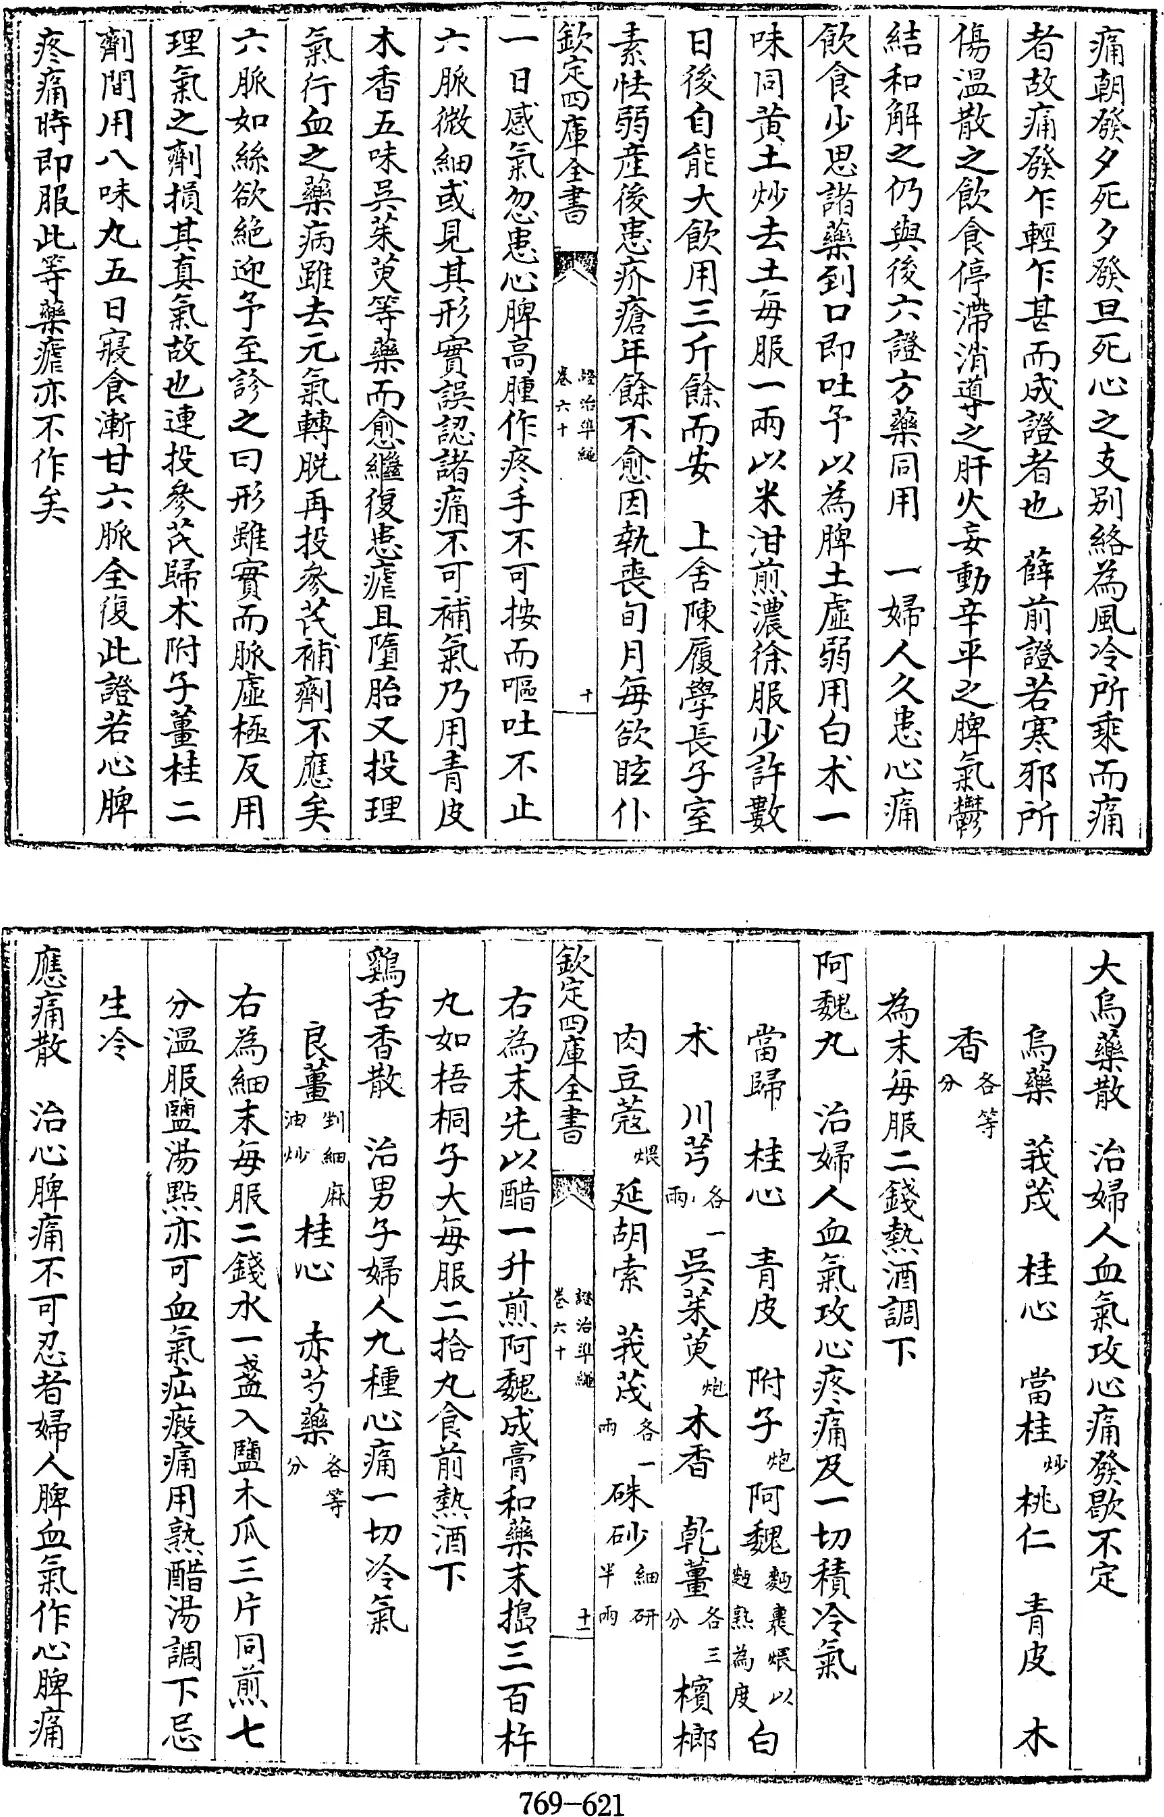 痛朝發夕死夕發旦死心之支别絡為風冷所乘而痛
者故痛發乍輕乍甚而成證者也　薛前證若寒邪所
傷温散之飲食停滯消導之肝火妄動辛平之脾氣鬱
結和解之仍與後六證方藥同用　一婦人久患心痛
飲食少思諸藥到口即吐予以為脾土虛弱用白术一
味同黄土炒去土每服一兩以米泔煎濃徐服少許數
日後自能大飲用三斤餘而安　上舍陳履學長子室
素怯弱産後患疥瘡年餘不愈因執喪旬月每欲眩仆
欽定四庫全書　證治準繩　卷六十　十
一日感氣忽患心脾高腫作疼手不可按而嘔吐不止
六脈微細或見其形實誤認諸痛不可補氣乃用青皮
木香五味吳茱萸等藥而愈繼復患瘧且墮胎又投理
氣行血之藥病雖去元氣轉脱再投參芪補劑不應矣
六脈如絲欲絶迎予至診之曰形雖實而脈虛極反用
理氣之劑損其真氣故也連投參芪歸术附子薑桂二
劑間用八味丸五日寢食漸甘六脈全復此證若心脾
疼痛時即服此等藥瘧亦不作矣
大烏藥散　治婦人血氣攻心痛發歇不定
烏藥　莪茂　桂心　當桂炒　桃仁　青皮　木
香各等分
為末每服二錢熱酒調下
阿魏丸　治婦人血氣攻心疼痛及一切積冷氣
當歸　桂心　青皮　附子炮　阿魏麵裹煨以麵熟為度　白
术　川芎各一兩　吳茱萸炮　木香　乾薑各三分　檳榔
肉豆蔻煨　延胡索　莪茂各一兩　硃砂細研半兩
欽定四庫全書　證治準繩　卷六十　十一
右為末先以醋一升煎阿魏成膏和藥末搗三百杵
丸如梧桐子大每服二拾丸食前熱酒下
鷄舌香散　治男子婦人九種心痛一切冷氣
良薑剉細麻油炒　桂心　赤芍藥各等分
右為細末每服二錢水一盞入鹽木瓜三片同煎七
分温服鹽湯點亦可血氣疝瘕痛用熟醋湯調下忌
生冷
應痛散　治心脾痛不可忍者婦人脾血氣作心脾痛
769-621